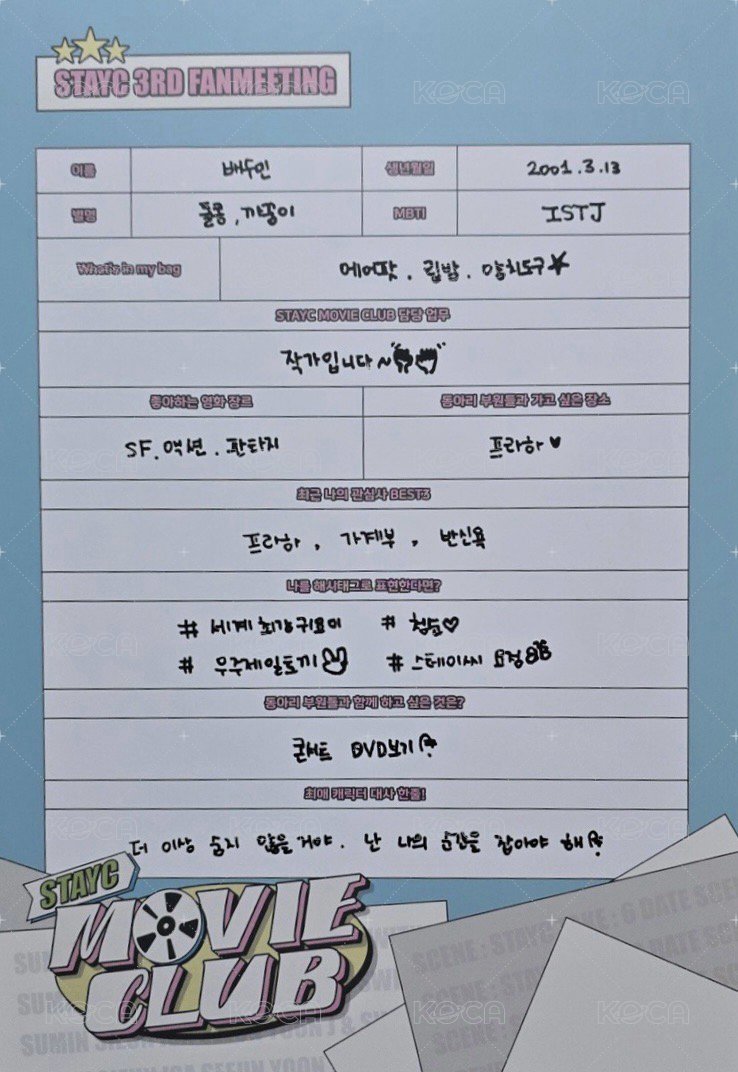 STAYC 3RD FANMEETING
이름 배수민 생년월일 2001.3.13
별명 돌콩, 까꿍이 MBTI ISTJ
What's in my bag 에어팟. 립밤. 양치도구
STAYC MOVIE CLUB 담당 업무
작가입니다~
좋아하는 영화 장르 동아리 부원들과 가고 싶은 장소
SF. 액션. 판타지 프라하♥
최근 나의 관심사 BEST3
프라하, 가계부, 반신욕
나를 해시태그로 표현한다면?
# 세계최강귀요미 # 첩순♡
# 우주제일토끼 # 스테이씨 요정
동아리 부원들과 함께 하고 싶은 것은?
콘서트 DVD보기
최애 캐릭터 대사 한줄!
더 이상 숨지 않을거야. 난 나의 순간을 잡아야 해
STAYC
MOVIE
CLUB
SCENE : STAYC
6 DATE SCENE
KeCA